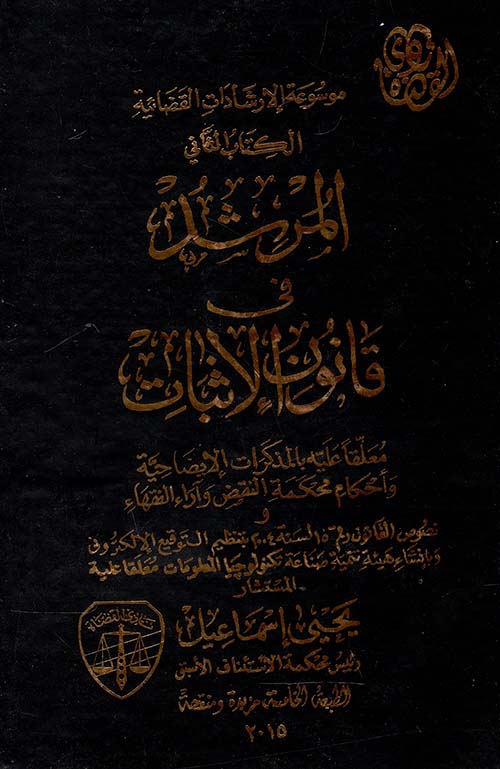 موسوعة الإرشادات القضائية
الكتاب الثاني
المرشد
في
قانون الإثبات
معلقاً عليه بالمذكرات الإيضاحية
وأحكام محكمة النقض وآراء الفقهاء
و
نصوص القانون رقم ١٥ لسنة ٢٠٠٤ بتنظيم التوقيع الإلكتروني
وبإنشاء هيئة تنمية صناعة تكنولوجيا المعلومات معلقا عليه
المستشار
يحيى إسماعيل
رئيس محكمة الاستئناف الأسبق
نادي القضاة
الطبعة الخامسة مزيدة ومنقحة
٢٠١٥